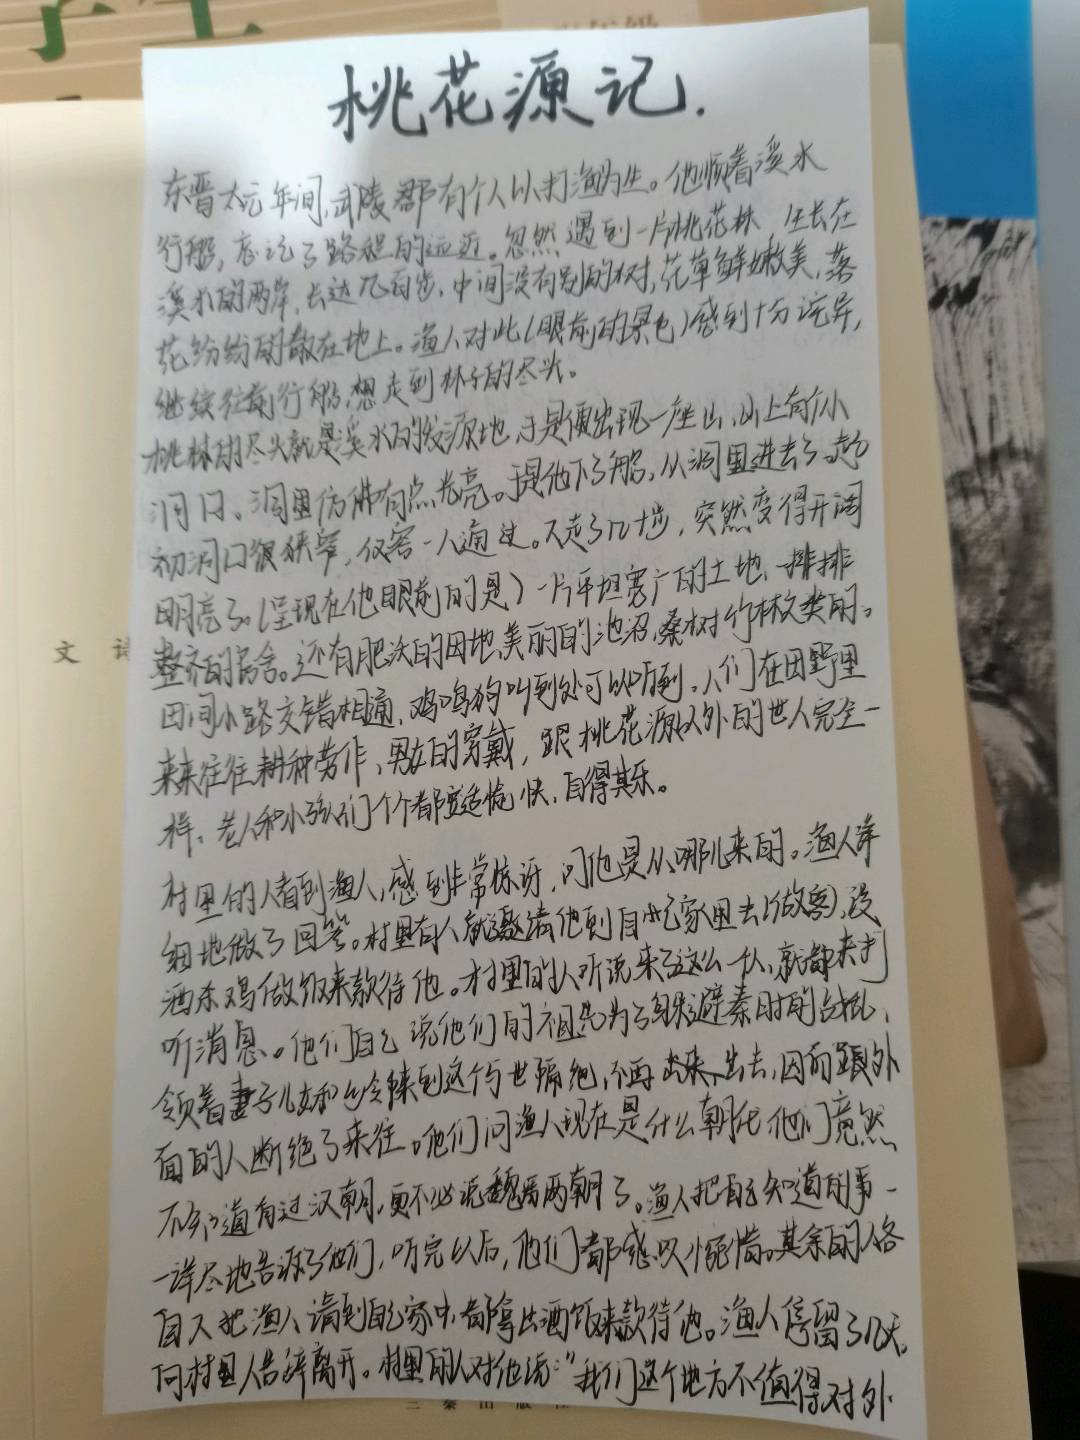 学生
桃花源记.
东晋太元年间,武陵郡有个人以打渔为生。他顺着溪水
行船,忘记了路程的远近。忽然遇到一片桃花林,生长在
溪水的两岸,长达几百步,中间没有别的树,花草鲜嫩美,落
花纷纷的散在地上。渔人对此(眼前的景色)感到十分诧异,
继续往前行船,想走到林子的尽头。
桃林的尽头就是溪水的发源地,于是便出现一座山,山上有个小
洞口、洞里仿佛有点光亮。于是他下了船,从洞里进去了。起
初洞口很狭窄,仅容一人通过。又走了几十步,突然变得开阔
明亮了。(呈现在他眼前的是)一片平坦宽广的土地、一排排
整齐的房舍。还有肥沃的田地,美丽的池沼,桑树竹林之类的。
田间小路交错相通,鸡鸣狗叫到处可以听到。人们在田野里
来来往往耕种劳作,男女的穿戴,跟桃花源以外的世人完全一
样。老人和小孩们个个都安适愉快,自得其乐。
村里的人看到渔人,感到非常惊讶,问他是从哪儿来的。渔人详
细地做了回答。村里有人就邀请他到自己家里去(做客),设
酒杀鸡做饭来款待他。村里的人听说来了这么一人,就都来打
听消息。他们自己说他们的祖先为了躲避秦时的战乱,
领着妻子儿女和乡邻来到这个与世隔绝,不再出来、出去,因而跟外
面的人断绝了来往。他们问渔人现在是什么朝代,他们竟然
不知道有过汉朝,更不必说魏晋两朝了。渔人把自己知道的事一
一详尽地告诉了他们,听完以后,他们都感叹惋惜。其余的人各
自又把渔人请到自己家中,都拿出酒饭来款待他。渔人停留了几天,
向村里人告辞离开。村里的人对他说:"我们这个地方不值得对外
文
三秦出版社